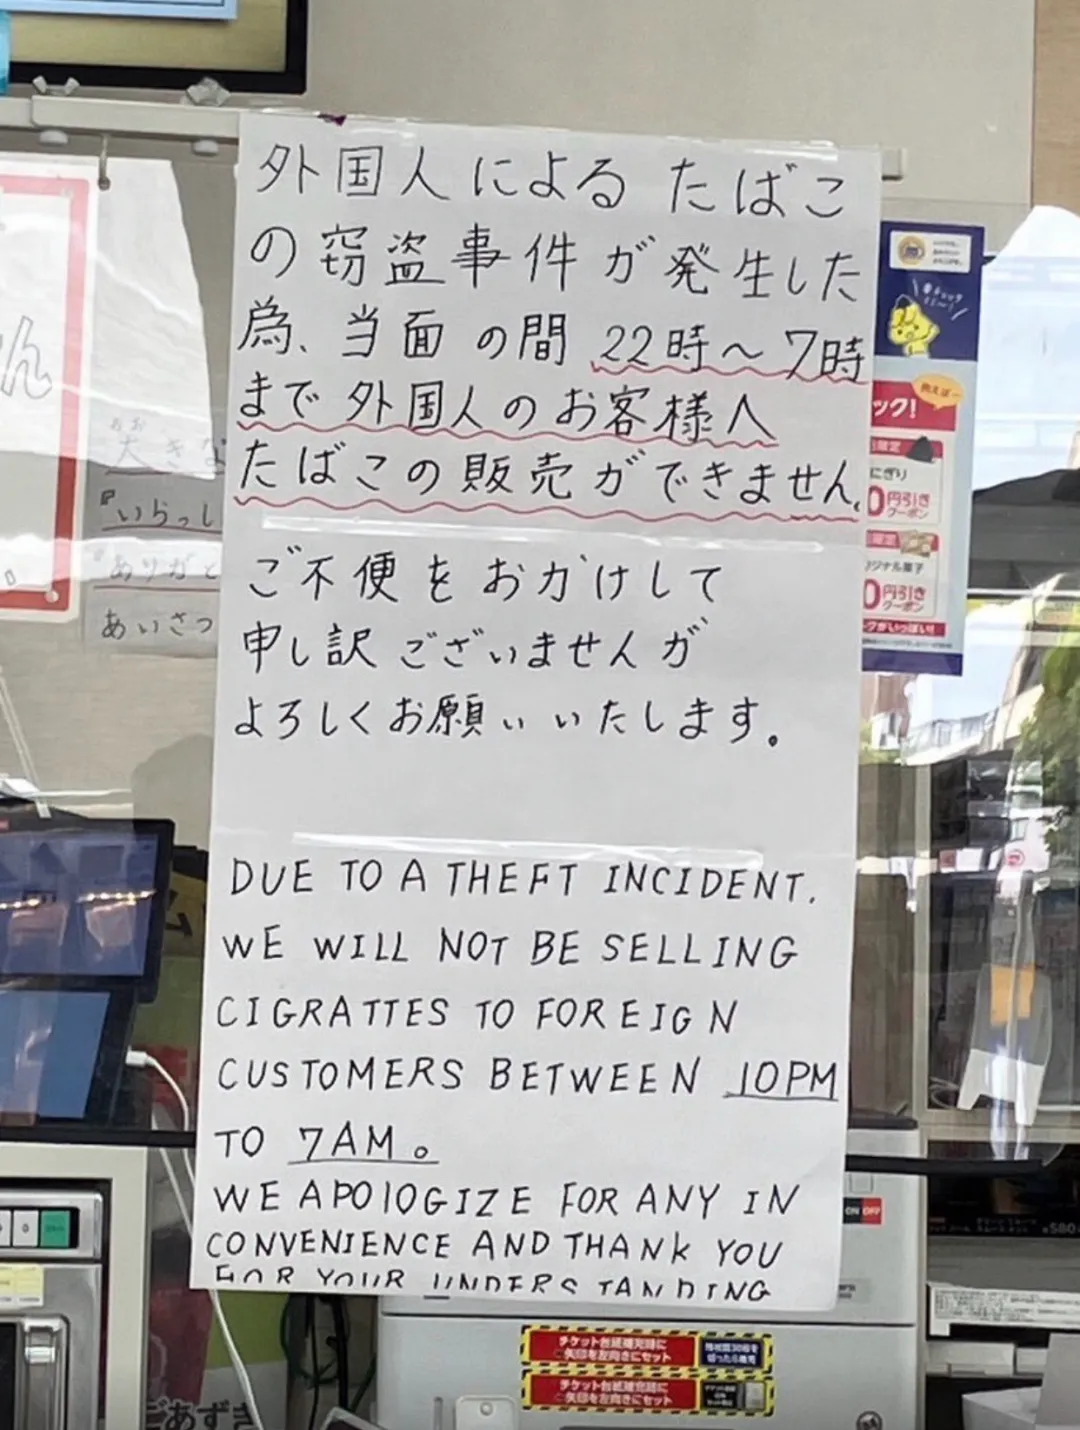 外国人による たばこ
の窃盗事件が発生した
為、当面の間 22時〜7時
まで外国人のお客様へ
たばこの販売ができません。
ご不便をおかけして
申し訳ございませんが
よろしくお願いいたします。
DUE TO A THEFT INCIDENT.
WE WILL NOT BE SELLING
CIGRATTES TO FOREIGN
CUSTOMERS BETWEEN 10PM
TO 7AM。
WE APOlOGIZE FOR ANY IN
CONVENIENCE AND THANK YOU
FOR YOUR UNDERSTANDING
おお
大きな
『いらっし
ありがと
あいさつ
例えば
ック!
にぎり
0円引き
クーポン
リジナル菓子
0円引き
クーポン
クがいっぱい!
ON OFF
¥580
チケット台紙補充時に
矢印を左向きにセット
チケット台紙補充時に
矢印を左向きにセット
ごあずき